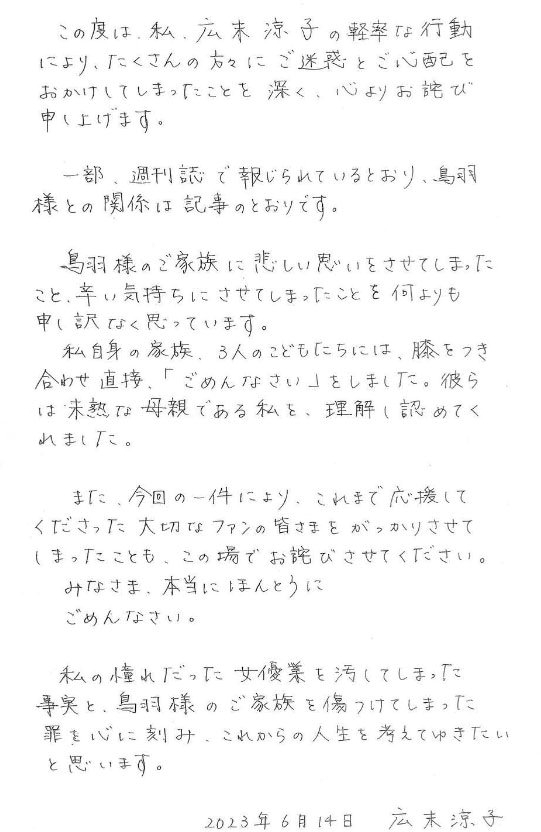 この度は、私、広末涼子の軽率な行動
により、たくさんの方々にご迷惑とご心配を
おかけしてしまったことを深く、心よりお詫び
申し上げます。
一部、週刊誌で報じられているとおり、鳥羽
様との関係は記事のとおりです。
鳥羽様のご家族に悲しい思いをさせてしまった
こと、辛い気持ちにさせてしまったことを何よりも
申し訳なく思っています。
私自身の家族、3人のこどもたちには、膝をつき
合わせ直接、「ごめんなさい」をしました。彼ら
は未熟な母親である私を、理解し認めてく
れました。
また、今回の一件により、これまで応援して
くださった大切なファンの皆さまをがっかりさせて
しまったことも、この場でお詫びさせてください。
みなさま、本当にほんとうに
ごめんなさい。
私の憧れだった女優業を汚してしまった
事実と、鳥羽様のご家族を傷つけてしまった
罪を心に刻み、これからの人生を考えてゆきたい
と思います。
2023年6月14日 広末涼子